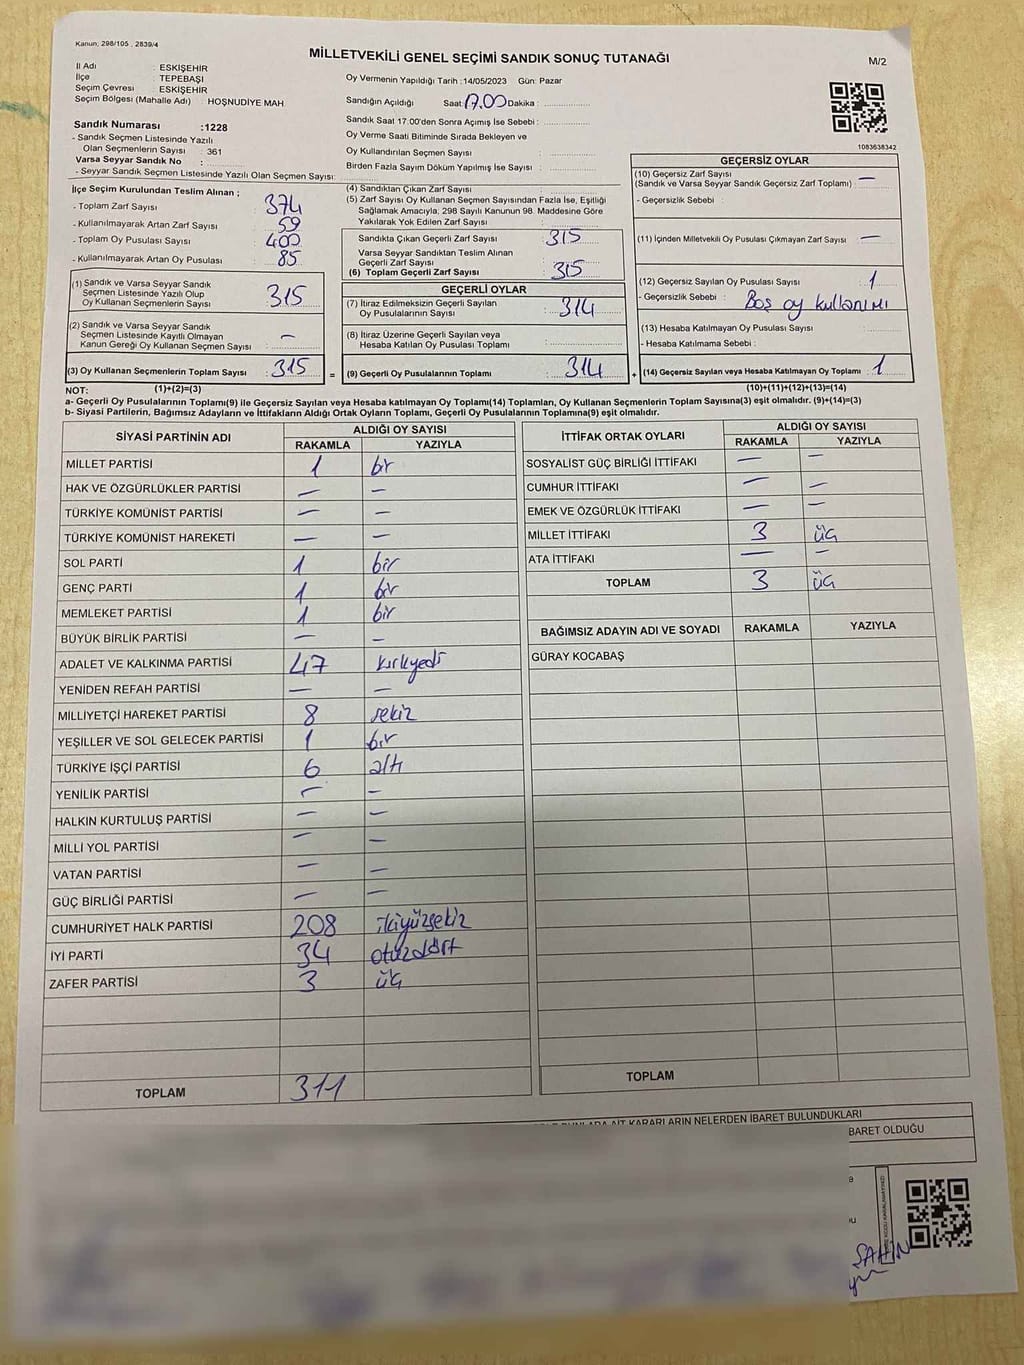 Kanun; 298/105 , 2839/4
MİLLETVEKİLİ GENEL SEÇİMİ SANDIK SONUÇ TUTANAĞI
M/2
İl Adı : ESKİŞEHİR
İlçe : TEPEBAŞI
Seçim Çevresi : ESKİŞEHİR
Seçim Bölgesi (Mahalle Adı) : HOŞNUDİYE MAH.
Sandık Numarası :1228
- Sandık Seçmen Listesinde Yazılı
Olan Seçmenlerin Sayısı : 361
Varsa Seyyar Sandık No :
- Seyyar Sandık Seçmen Listesinde Yazılı Olan Seçmen Sayısı:
Oy Vermenin Yapıldığı Tarih :14/05/2023 Gün: Pazar
Sandığın Açıldığı Saat: 17.00 Dakika :
Sandık Saat 17.00'den Sonra Açımış İse Sebebi :
Oy Verme Saati Bitiminde Sırada Bekleyen ve
Oy Kullandırılan Seçmen Sayısı :
Birden Fazla Sayım Döküm Yapılmış İse Sayısı :
1083638342
İlçe Seçim Kurulundan Teslim Alınan ;
- Toplam Zarf Sayısı : 374
- Kullanılmayarak Artan Zarf Sayısı : 59
- Toplam Oy Pusulası Sayısı : 400
- Kullanılmayarak Artan Oy Pusulası : 85
(1) Sandık ve Varsa Seyyar Sandık
Seçmen Listesinde Yazılı Olup
Oy Kullanan Seçmenlerin Sayısı : 315
(2) Sandık ve Varsa Seyyar Sandık
Seçmen Listesinde Kayıtlı Olmayan
Kanun Gereği Oy Kullanan Seçmen Sayısı : —
(3) Oy Kullanan Seçmenlerin Toplam Sayısı : 315
(4) Sandıktan Çıkan Zarf Sayısı :
(5) Zarf Sayısı Oy Kullanan Seçmen Sayısından Fazla İse, Eşitliği
Sağlamak Amacıyla; 298 Sayılı Kanunun 98. Maddesine Göre
Yakılarak Yok Edilen Zarf Sayısı :
Sandıkta Çıkan Geçerli Zarf Sayısı : 315
Varsa Seyyar Sandıktan Teslim Alınan
Geçerli Zarf Sayısı :
(6) Toplam Geçerli Zarf Sayısı : 315
GEÇERLİ OYLAR
(7) İtiraz Edilmeksizin Geçerli Sayılan
Oy Pusulalarının Sayısı : 314
(8) İtiraz Üzerine Geçerli Sayılan veya
Hesaba Katılan Oy Pusulası Toplamı :
= (9) Geçerli Oy Pusulalarının Toplamı : 314
GEÇERSİZ OYLAR
(10) Geçersiz Zarf Sayısı
(Sandık ve Varsa Seyyar Sandık Geçersiz Zarf Toplamı) : —
- Geçersizlik Sebebi :
(11) İçinden Milletvekili Oy Pusulası Çıkmayan Zarf Sayısı : —
(12) Geçersiz Sayılan Oy Pusulası Sayısı : 1
- Geçersizlik Sebebi : Boş oy kullanımı
(13) Hesaba Katılmayan Oy Pusulası Sayısı :
- Hesaba Katılmama Sebebi :
+ (14) Geçersiz Sayılan veya Hesaba Katılmayan Oy Toplamı : 1
NOT: (1)+(2)=(3) (10)+(11)+(12)+(13)=(14)
a- Geçerli Oy Pusulalarının Toplamı(9) ile Geçersiz veya Hesaba katılmayan Oy Pusulası Toplamı(14) Toplamları, Oy Kullanan Seçmenlerin Toplam Sayısına(3) eşit olmalıdır. (9)+(14)=(3)
b- Siyasi Partilerin, Bağımsız Adayların ve İttifakların Aldığı Ortak Oyların Toplamı, Geçerli Oy Pusulalarının Toplamına(9) eşit olmalıdır.
SİYASİ PARTİNİN ADI ALDIĞI OY SAYISI
RAKAMLA YAZIYLA
MİLLET PARTİSİ 1 bir
HAK VE ÖZGÜRLÜKLER PARTİSİ — —
TÜRKİYE KOMÜNİST PARTİSİ — —
TÜRKİYE KOMÜNİST HAREKETİ — —
SOL PARTİ 1 bir
GENÇ PARTİ 1 bir
MEMLEKET PARTİSİ 1 bir
BÜYÜK BİRLİK PARTİSİ — —
ADALET VE KALKINMA PARTİSİ 47 kırkyedi
YENİDEN REFAH PARTİSİ — —
MİLLİYETÇİ HAREKET PARTİSİ 8 sekiz
YEŞİLLER VE SOL GELECEK PARTİSİ 1 bir
TÜRKİYE İŞÇİ PARTİSİ 6 altı
YENİLİK PARTİSİ — —
HALKIN KURTULUŞ PARTİSİ — —
MİLLİ YOL PARTİSİ — —
VATAN PARTİSİ — —
GÜÇ BİRLİĞİ PARTİSİ — —
CUMHURİYET HALK PARTİSİ 208 ikiyüzsekiz
İYİ PARTİ 34 otuzdört
ZAFER PARTİSİ 3 üç
TOPLAM 311
İTTİFAK ORTAK OYLARI ALDIĞI OY SAYISI
RAKAMLA YAZIYLA
SOSYALİST GÜÇ BİRLİĞİ İTTİFAKI — —
CUMHUR İTTİFAKI — —
EMEK VE ÖZGÜRLÜK İTTİFAKI — —
MİLLET İTTİFAKI 3 üç
ATA İTTİFAKI — —
TOPLAM 3 üç
BAĞIMSIZ ADAYIN ADI VE SOYADI RAKAMLA YAZIYLA
GÜRAY KOCABAŞ
TOPLAM
AİT KARARLARIN NELERDEN İBARET BULUNDUKLARI
BARET OLDUĞU
ŞAHİN